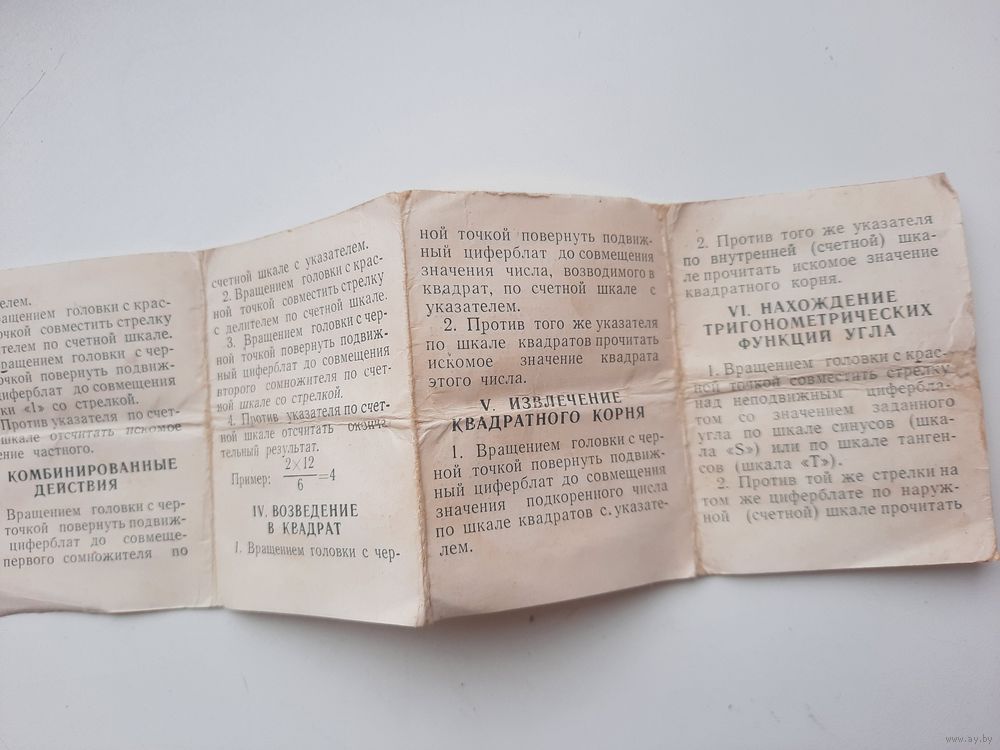 елем.
ращением головки с крас-
очкой совместить стрелку
телем по счетной шкале.
ращением головки с чер-
очкой повернуть подвиж-
циферблат до совмещения
ки «1» со стрелкой.
Против указателя по счет-
шкале отсчитать искомое
ение частного.
КОМБИНИРОВАННЫЕ
ДЕЙСТВИЯ
Вращением головки с чер-
точкой повернуть подвиж-
циферблат до совмеще-
первого сомножителя по
счетной шкале с указателем.
2. Вращением головки с крас-
ной точкой совместить стрелку
с делителем по счетной шкале.
3. Вращением головки с чер-
ной точкой повернуть подвиж-
ный циферблат до совмещения
второго сомножителя по счет-
ной шкале со стрелкой.
4. Против указателя по счет-
ной шкале отсчитать оконча-
тельный результат.
Пример: 2×12/6=4
IV. ВОЗВЕДЕНИЕ
В КВАДРАТ
1. Вращением головки с чер-
ной точкой повернуть подвиж-
ный циферблат до совмещения
значения числа, возводимого в
квадрат, по счетной шкале с
указателем.
2. Против того же указателя
по шкале квадратов прочитать
искомое значение квадрата
этого числа.
V. ИЗВЛЕЧЕНИЕ
КВАДРАТНОГО КОРНЯ
1. Вращением головки с чер-
ной точкой повернуть подвиж-
ный циферблат до совмещения
значения подкоренного числа
по шкале квадратов с указате-
лем.
2. Против того же указателя
по внутренней (счетной) шка-
ле прочитать искомое значение
квадратного корня.
VI. НАХОЖДЕНИЕ
ТРИГОНОМЕТРИЧЕСКИХ
ФУНКЦИЙ УГЛА
1. Вращением головки с крас-
ной точкой совместить стрелку
над неподвижным цифербла-
том со значением заданного
угла по шкале синусов (шка-
ла «S») или по шкале танген-
сов (шкала «Т»).
2. Против той же стрелки на
том же циферблате по наруж-
ной (счетной) шкале прочитать
www.ay.by